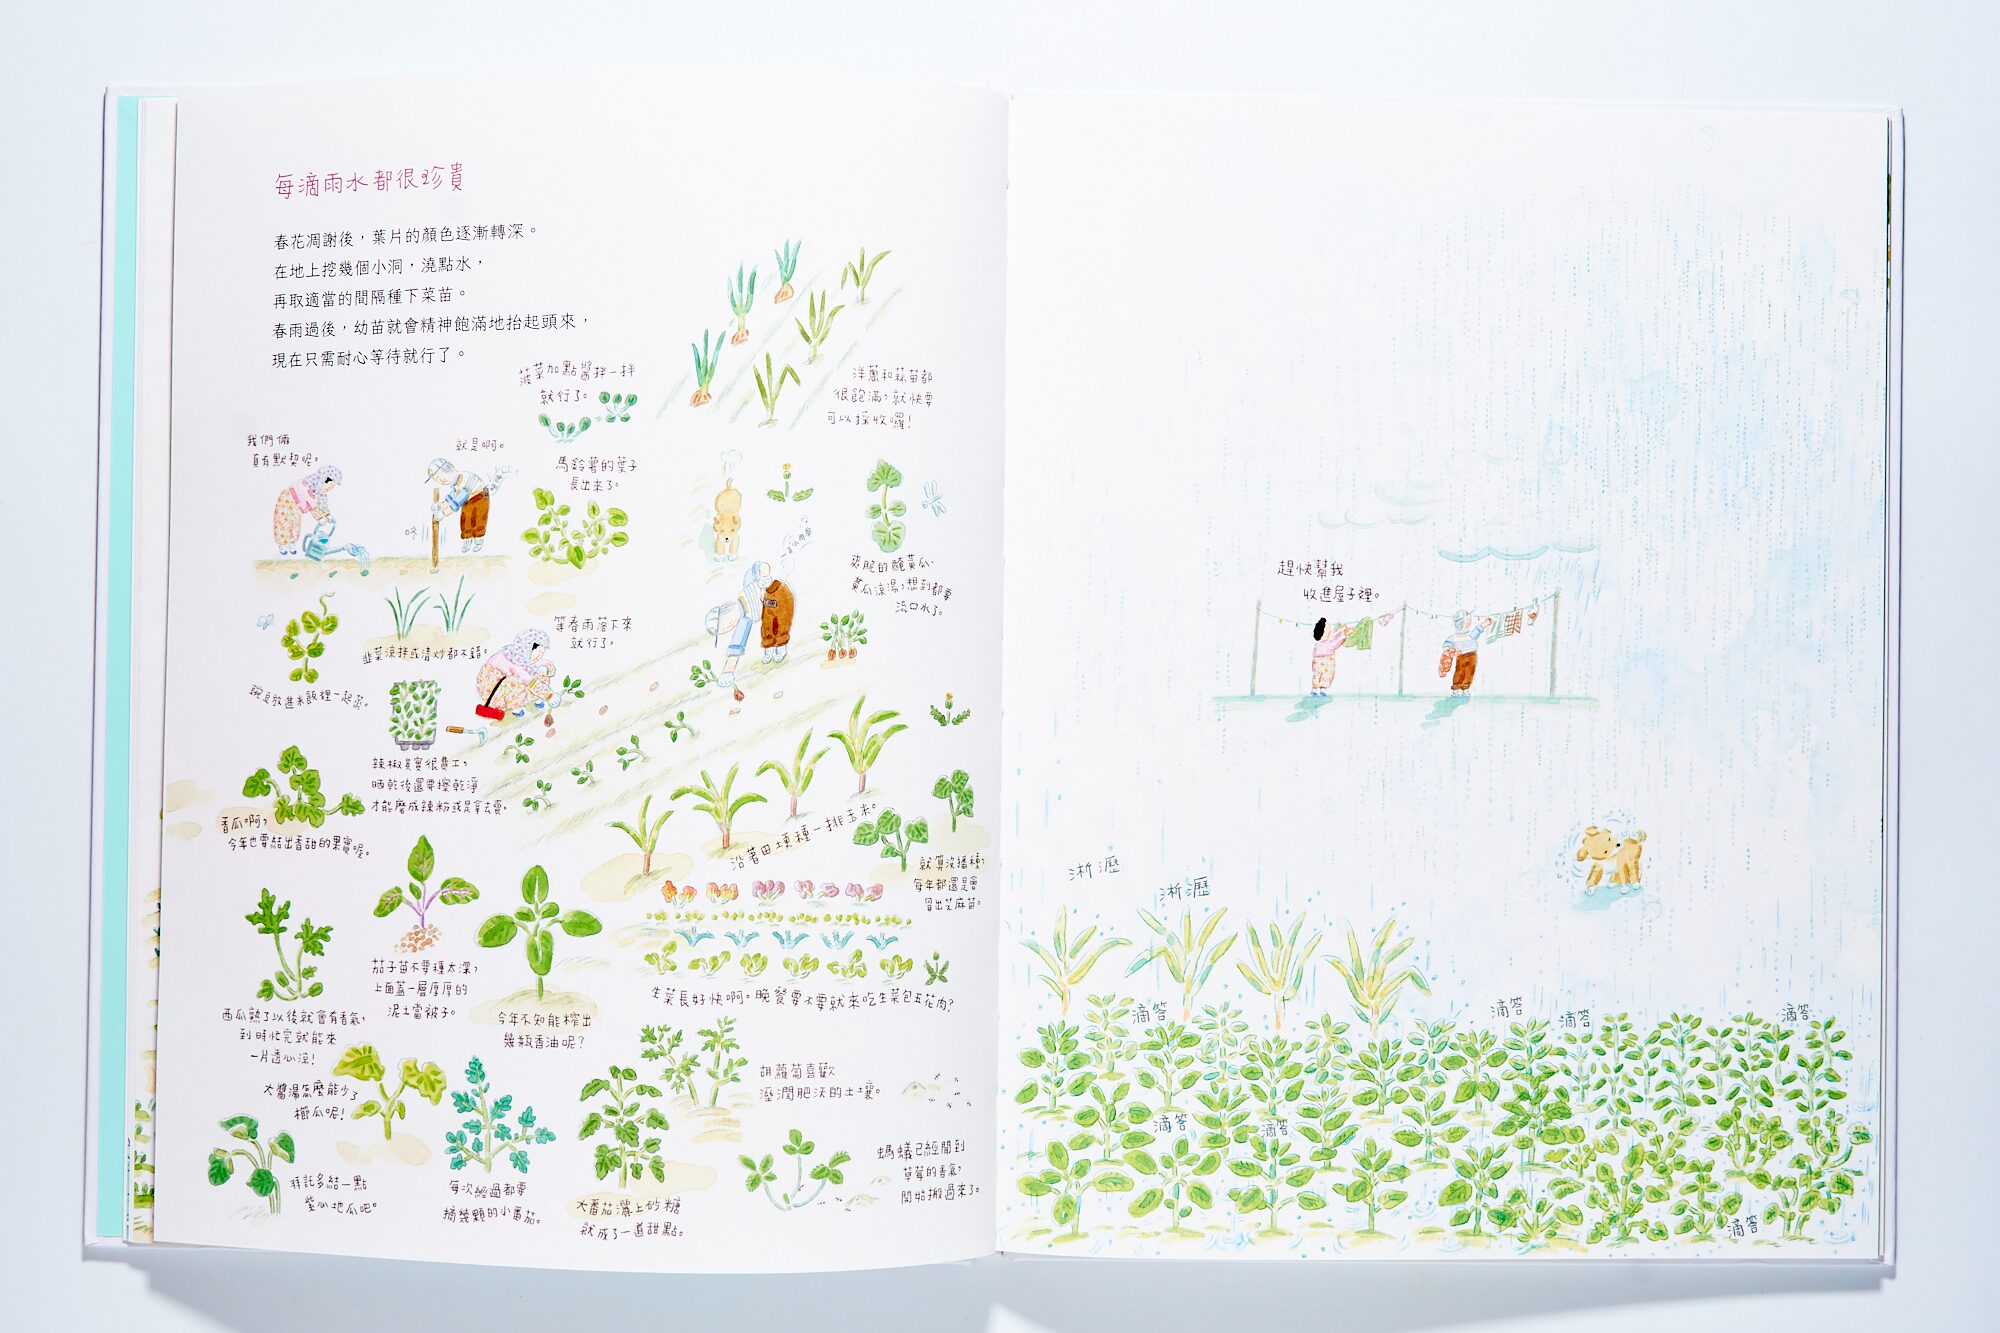 每滴雨水都很珍貴
春花凋謝後，葉片的顏色逐漸轉深。
在地上挖幾個小洞，澆點水，
再取適當的間隔種下菜苗。
春雨過後，幼苗就會精神飽滿地抬起頭來，
現在只需耐心等待就行了。
菠菜加點醬拌一拌
就行了。
洋蔥和蒜苗都
很飽滿，就快要
可以採收囉！
我們倆
真有默契呢。
就是啊。
咚
馬鈴薯的葉子
長出來了。
爽脆的醃黃瓜、
黃瓜涼湯，想到都要
流口水了。
韭菜涼拌或清炒都不錯。
等春雨落下來
就行了。
豌豆放進米飯裡一起煮。
辣椒其實很費工，
晒乾後還要擦乾淨
才能磨成辣粉或是拿去賣。
香瓜啊，
今年也要結出香甜的果實喔。
沿著田埂種一排玉米。
就算沒播種，
每年都還是會
冒出芝麻苗。
茄子苗不要種太深，
上面蓋一層厚厚的
泥土當被子。
西瓜熟了以後就會有香氣，
到時忙完就能來
一片透心涼！
今年不知能榨出
幾瓶香油呢？
生菜長好快啊。晚餐要不要就來吃生菜包五花肉？
大醬湯怎麼能少了
櫛瓜呢！
胡蘿蔔喜歡
溼潤肥沃的土壤。
拜託多結一點
紫心地瓜吧。
每次經過都要
摘幾顆的小番茄。
大番茄灑上砂糖
就成了一道甜點。
螞蟻已經聞到
草莓的香氣，
開始搬過來了。
趕快幫我
收進屋子裡。
淅瀝
淅瀝
滴答
滴答
滴答
滴答
滴答
滴答
滴答